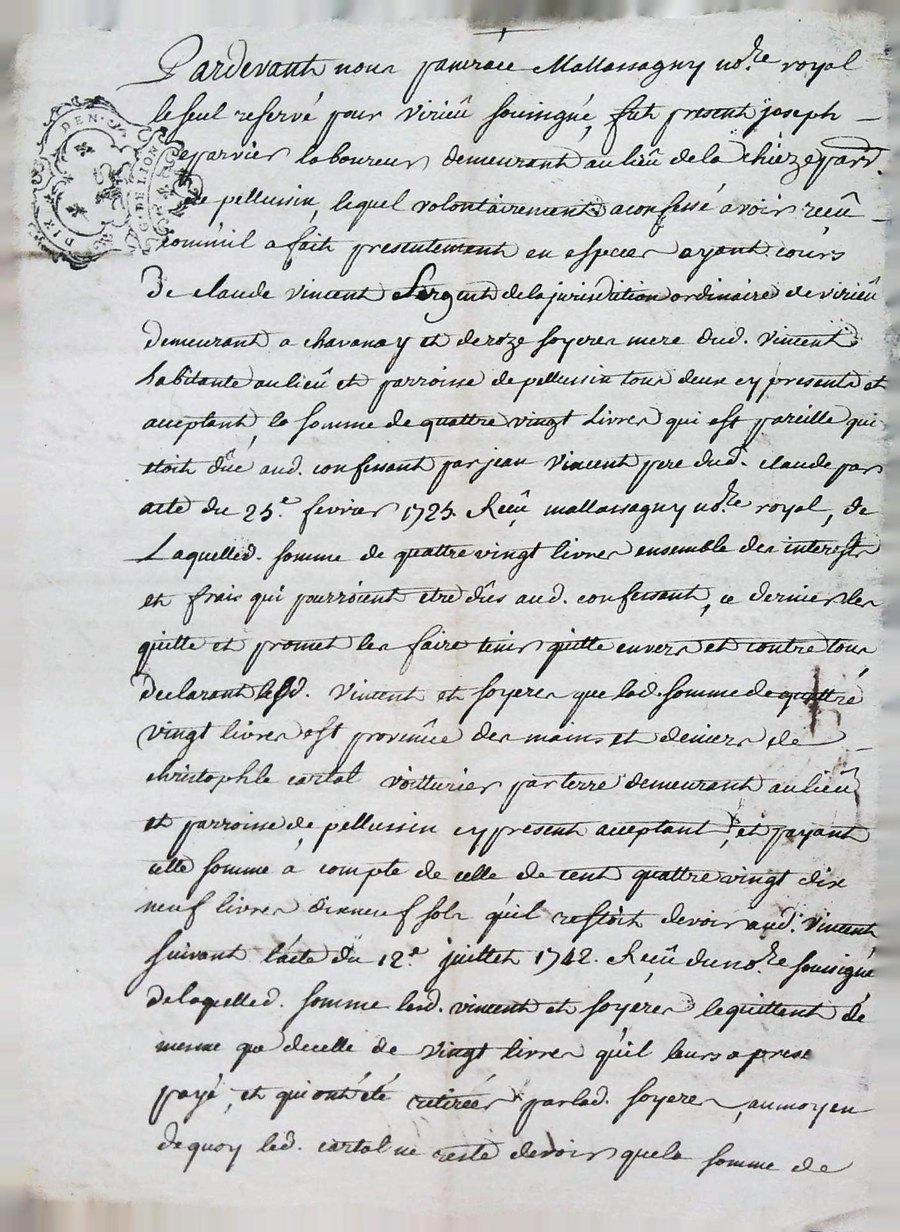 Pardevant nous pancrace Mallassagny no.re royal
le seul reservé pour virieû soussigné, fut present joseph
eparvier laboureur demeurant au lieû de la chieze parr.
de pellussin, lequel volontairement a confessé avoir receû
comm'il a fait presentement en especes ayant cours
De claude vincent Sergent de la jurisdition ordinaire de virieû
demeurant a chavanay et de roze soyere mere dud. vincent
habitante au lieû et parroisse de pellussin tous deux cy presents et
acceptant, la somme de quattre vingt Livres qui est pareille qui
etoit dûe aud. confessant par jean vincent pere dud. claude par
acte du 25.e fevrier 1725. Receû mallassagny no.re royal, de
Laquelled. somme de quattre vingt livres ensemble des interests
et frais qui pourroient etre dûs aud. confessant, ce dernier les
quitte et promet les faire tenir quitte envers et contre tous
declarant lesd. vincent et soyere que lad. somme de quattre
vingt livres est provenûe des mains et deniers de
christophle cartal voitturier par terre demeurant au lieû
et parroisse de pellussin cy present acceptant, et payant
cette somme à compte de celle de cent quattre vingt dix
neuf livres dixneuf sols qu'il restoit devoir aud. vincent
suivant l'acte du 12.e juillet 1742. Receû du no.re soussigné
de laquelled. somme lesd. vincent et soyere le quittent de
mesme que de celle de vingt livres qu'il leurs a
payé, et qui ont été retirées par lad. soyere, au moyen
de quoy led. cartal ne reste devoir que la somme de
DIX DEN.
G. DE LION